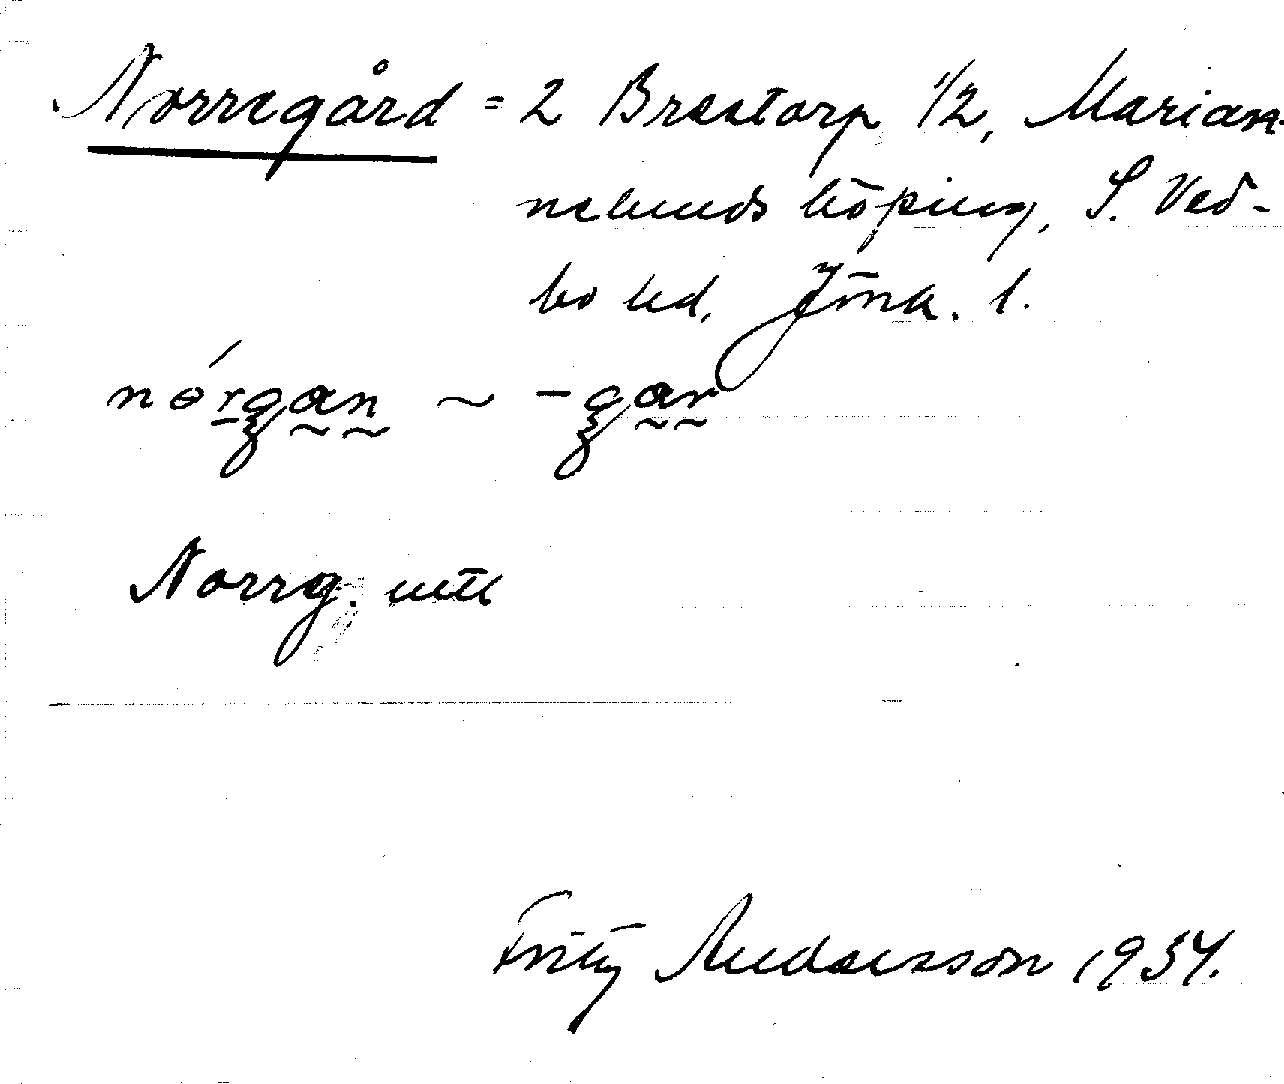 Norregård = 2 Brestorp 1/2, Marian-
nelunds köping, S. Ved-
bo hd, Jönk. l.
nǿrgan ~ -gar
Norrg.
Fritz Andersson 1934.